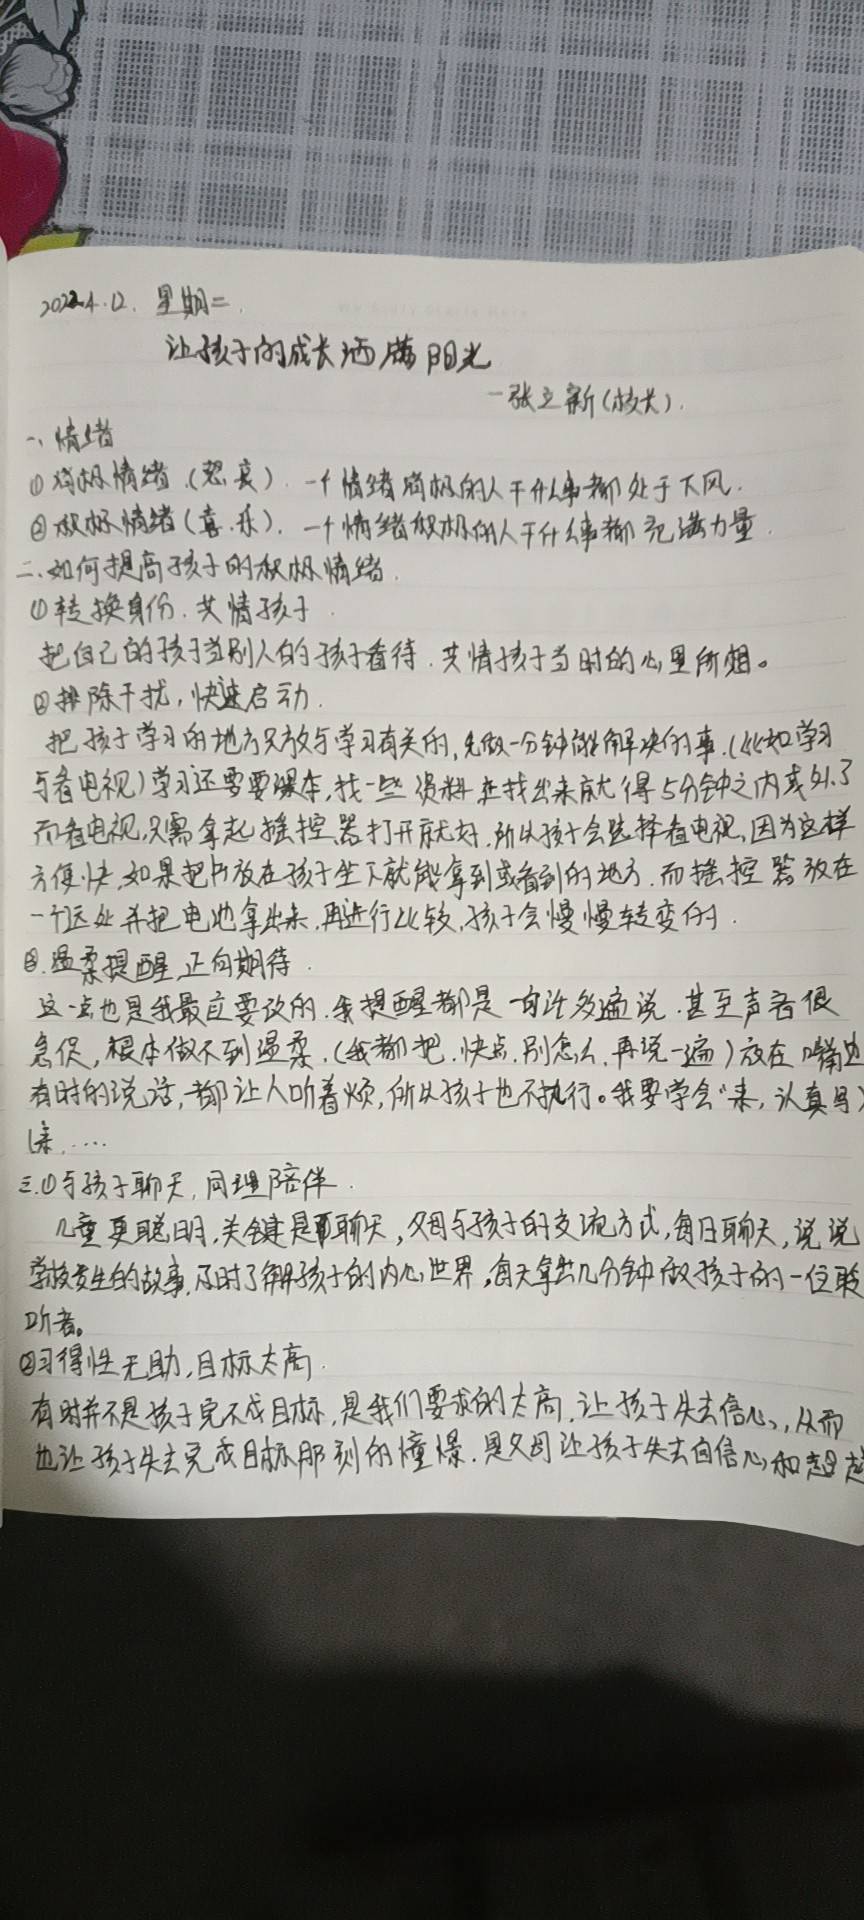 2022.4.12. 星期二.
让孩子的成长洒满阳光
—张立新(校长).
一、情绪
①消极情绪.(怒.哀).一个情绪消极的人干什么事都处于下风.
②积极情绪(喜.乐).一个情绪积极的人干什么事都充满力量.
二、如何提高孩子的积极情绪.
①转换身份.共情孩子.
把自己的孩子当别人的孩子看待.共情孩子当时的心里所想。
②排除干扰,快速启动.
把孩子学习的地方只放与学习有关的,先做一分钟能解决的事.(比如学习
与看电视)学习还需要课本,找一些资料 在找出来就得5分钟之内或外.了
而看电视只需拿起摇控器打开就好.所以孩子会选择看电视,因为这样
方便快,如果把书放在孩子坐下就能拿到或看到的地方.而摇控器放在
一个远处并把电池拿出来,再进行比较,孩子会慢慢转变的.
③.温柔提醒 正向期待.
这一点也是我最应要改的.我提醒都是一句许多遍说.甚至声音很
急促,根本做不到温柔.(我都把.快点.别怎么.再说一遍)放在嘴边
有时的说话,都让人听着烦,所以孩子也不执行。我要学会"来,认真写
来.....
三.①与孩子聊天,同理陪伴.
儿童更聪明,关键是聊天,父母与孩子的交流方式,每日聊天,说说
学校发生的故事,及时了解孩子的内心世界,每天拿出几分钟做孩子的一位聆
听者。
②习得性无助,目标太高.
有时并不是孩子完不成目标,是我们要求的太高,让孩子失去信心,从而
也让孩子失去完成目标那刻的憧憬.是父母让孩子失去自信心和超越